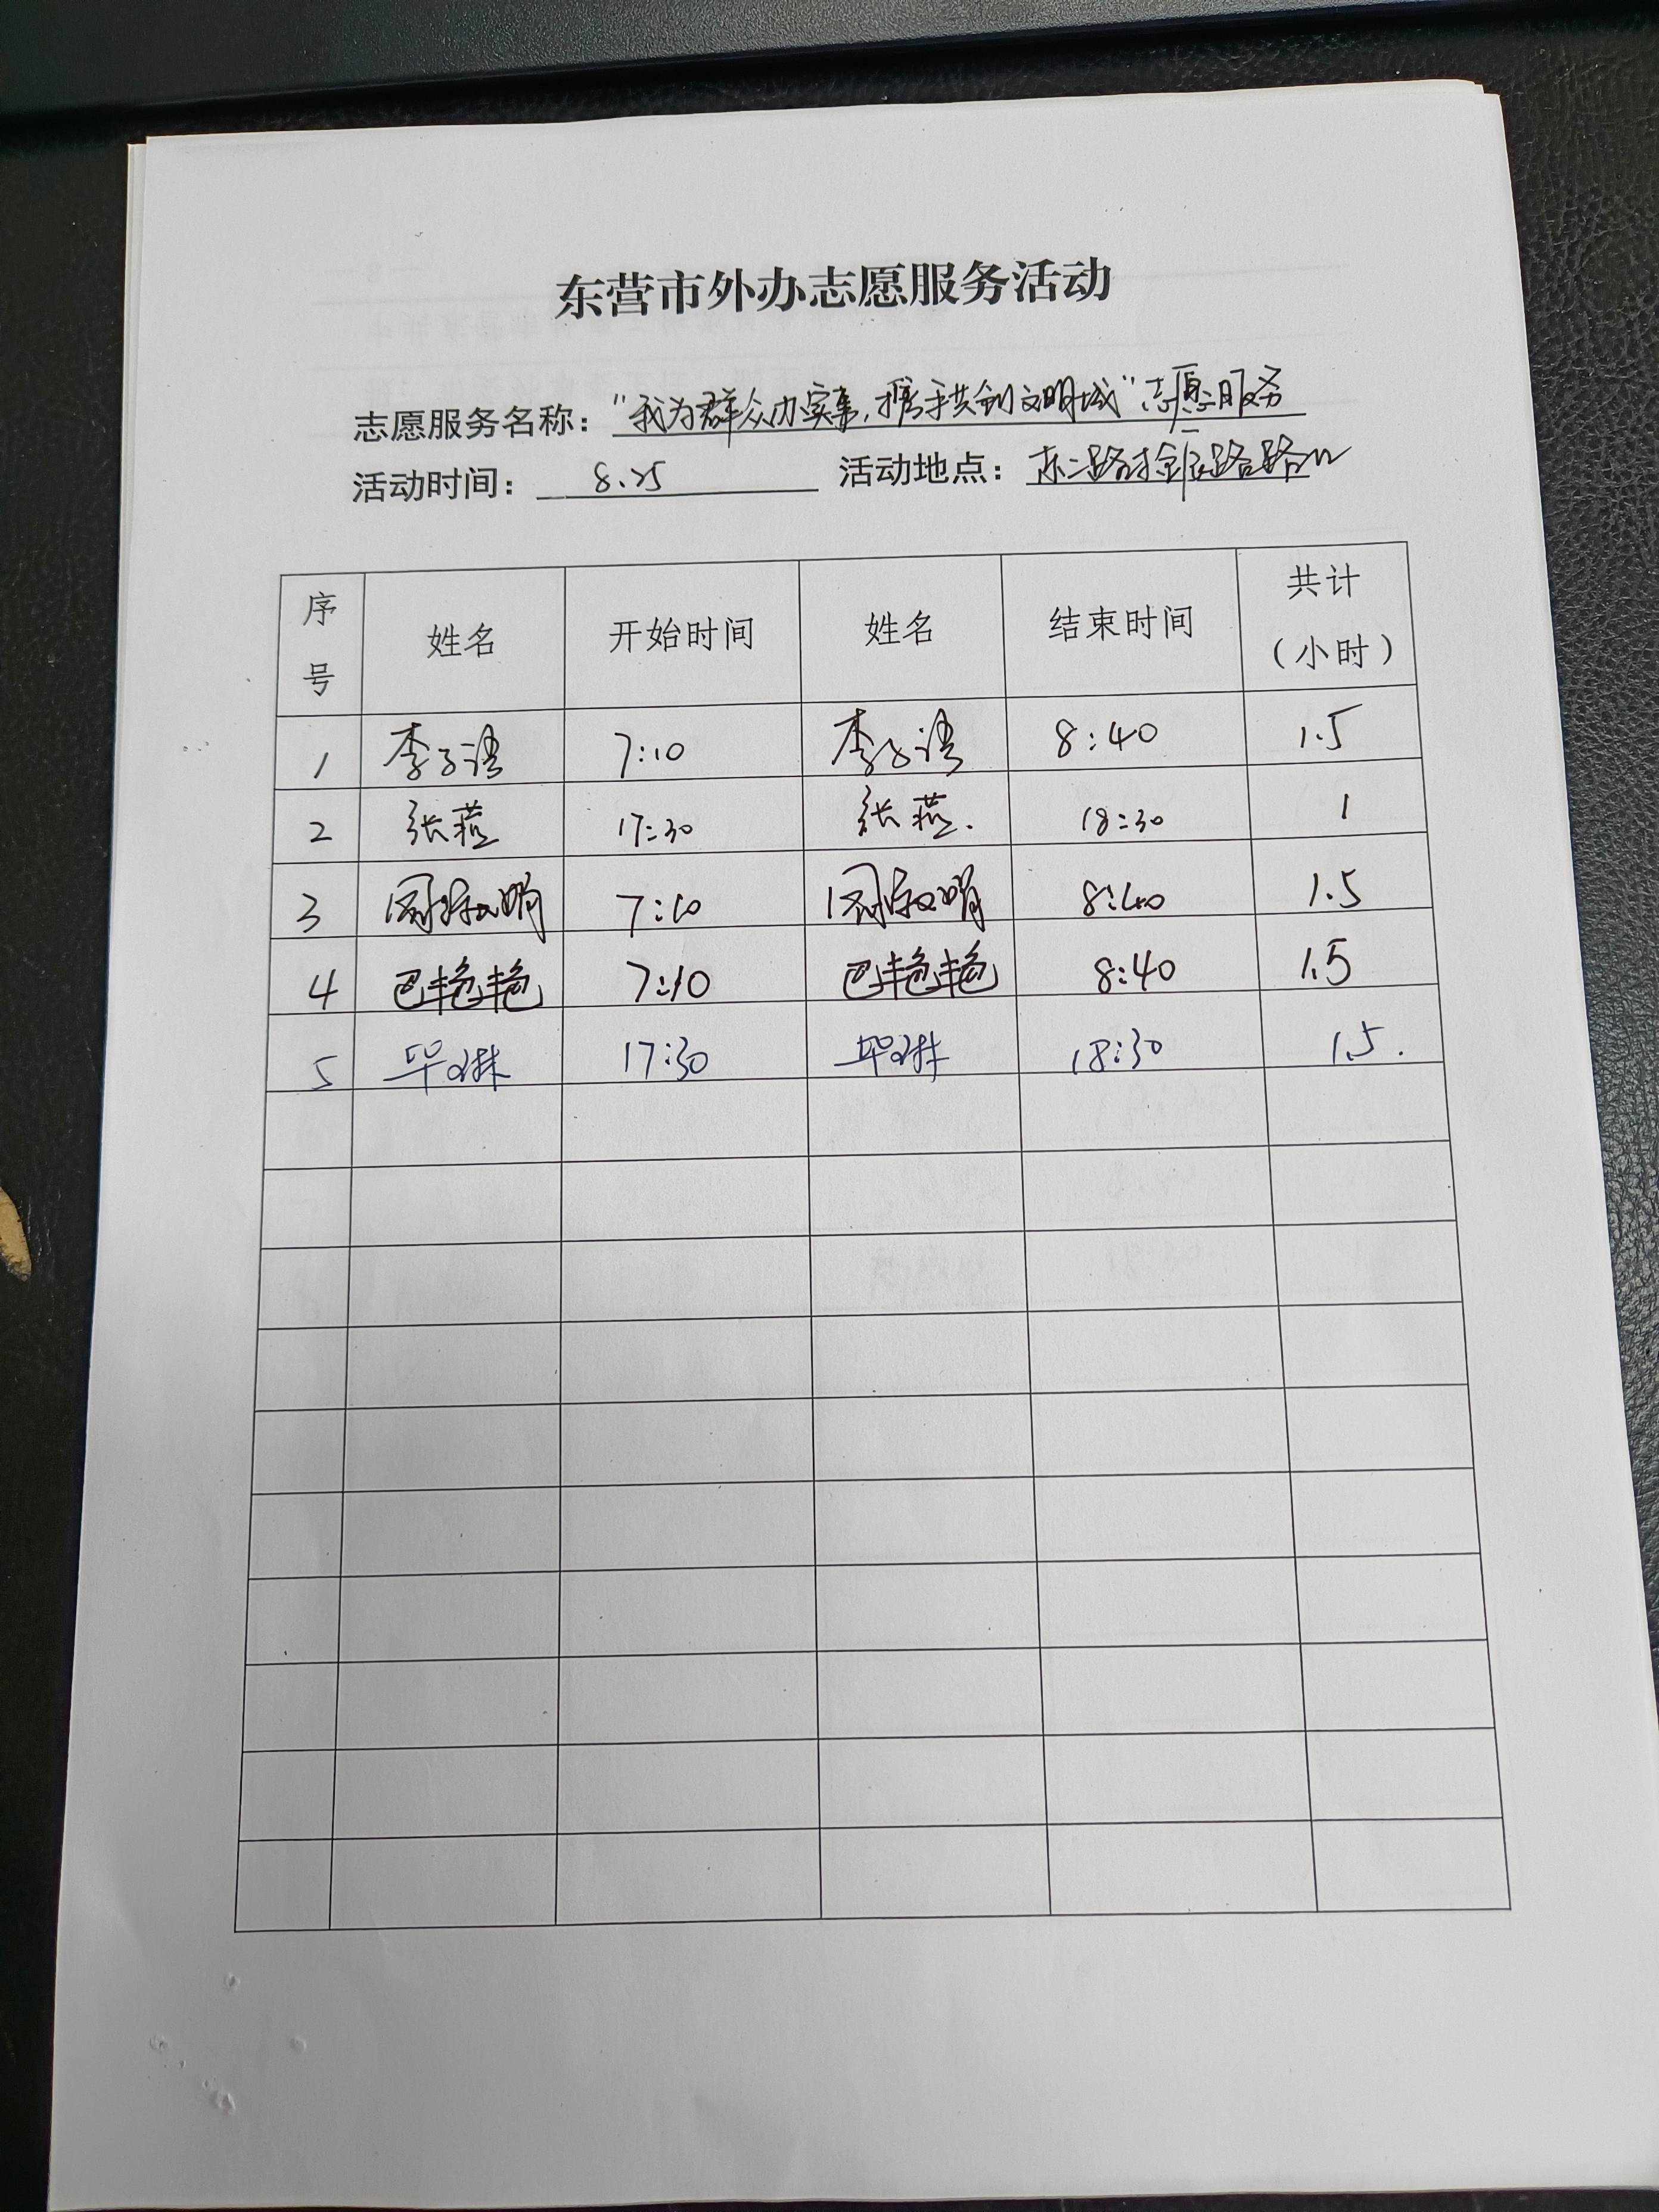 东营市外办志愿服务活动
志愿服务名称："我为群众办实事，携手共创文明城"志愿服务
活动时间：8.25 活动地点：东二路 路路口
序号 姓名 开始时间 姓名 结束时间 共计（小时）
1 李子语 7:10 李子语 8:40 1.5
2 张燕 17:30 张燕. 18:30 1
3 周 明 7:10 周 明 8:40 1.5
4 巴艳艳 7:10 巴艳艳 8:40 1.5
5 毕琳 17:30 毕琳 18:30 1.5.